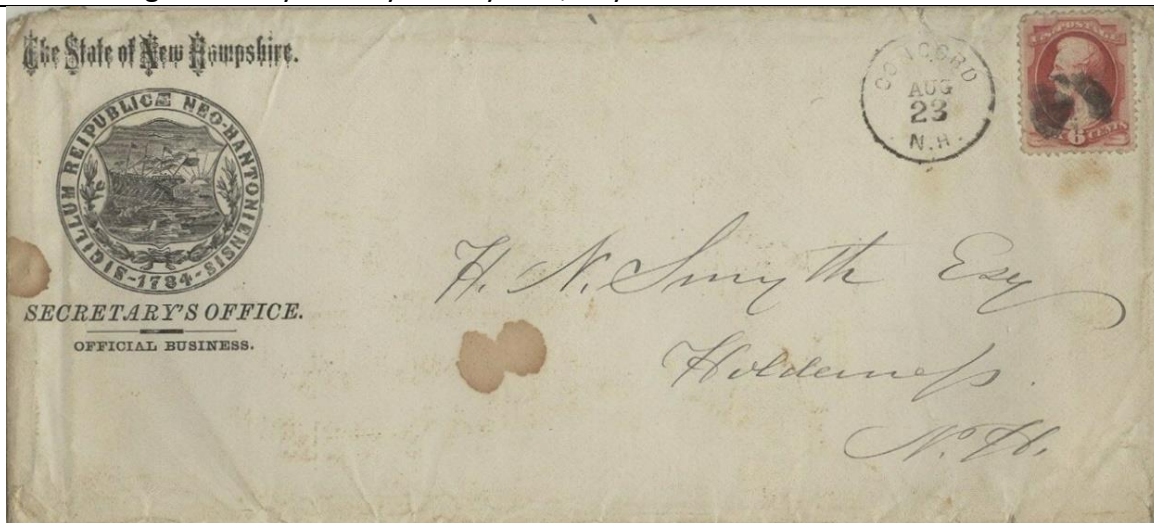 The State of New Hampshire.
SIGILLUM REIPUBLICÆ NEO-HANTONIENSIS
-1784-
SECRETARY'S OFFICE.
OFFICIAL BUSINESS.
CONCORD
AUG
23
N.H.
U.S. POSTAGE
6 CENTS
H. N. Smyth Esq
Holderness.
N. H.